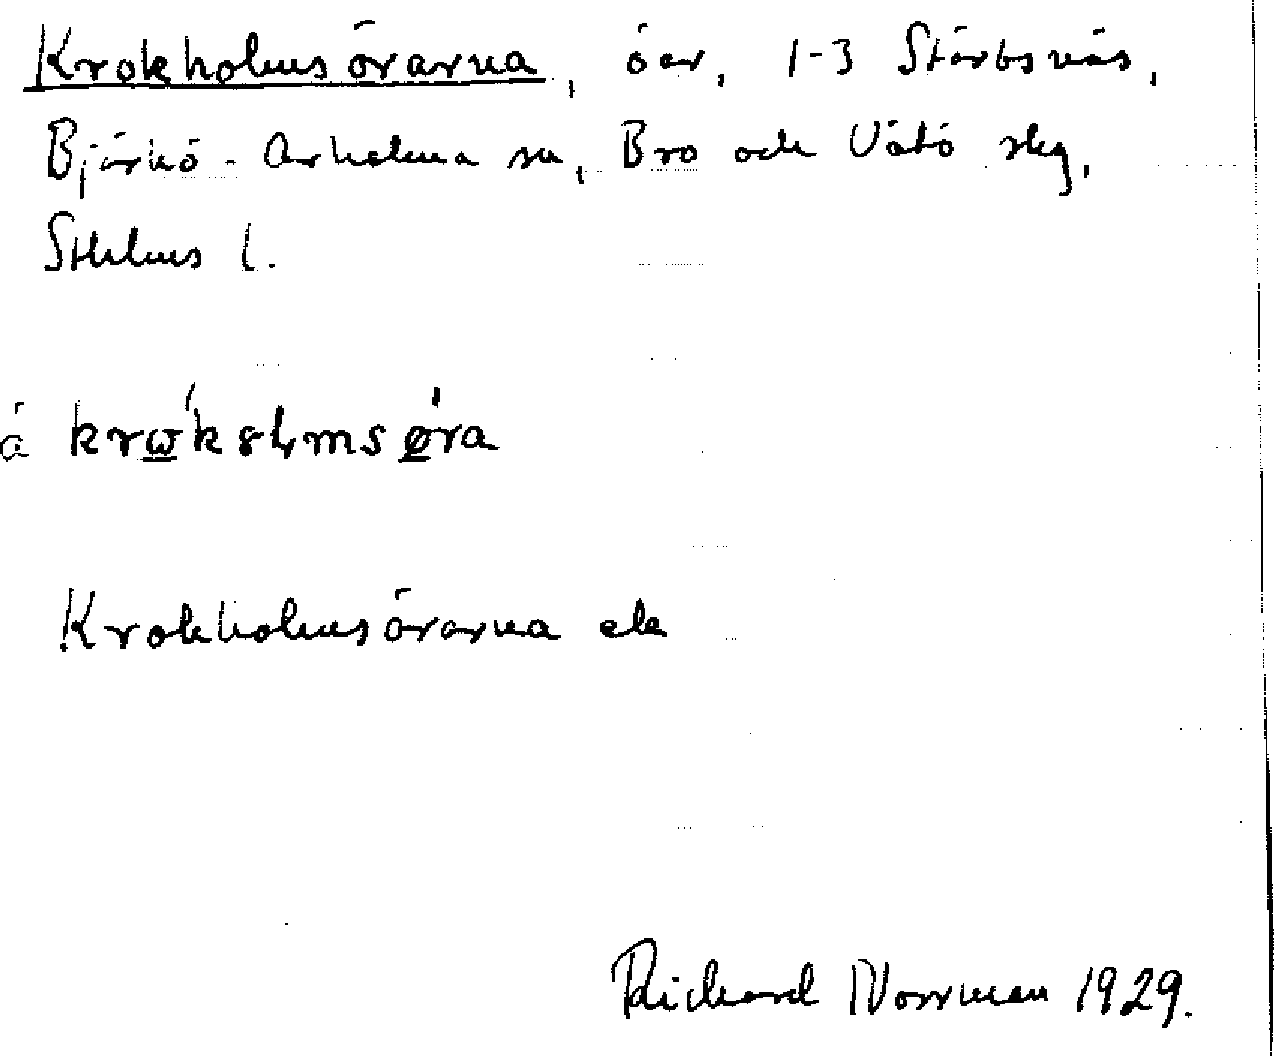 Krokholmsörarna, öar, 1-3 Störbsnäs,
Björkö-Arholma sn, Bro och Vätö skg,
Sthlms l.
å krώ̲kshl̥msø̲̀ra
Krokholmsörarna ek
Richard Norrman 1929.